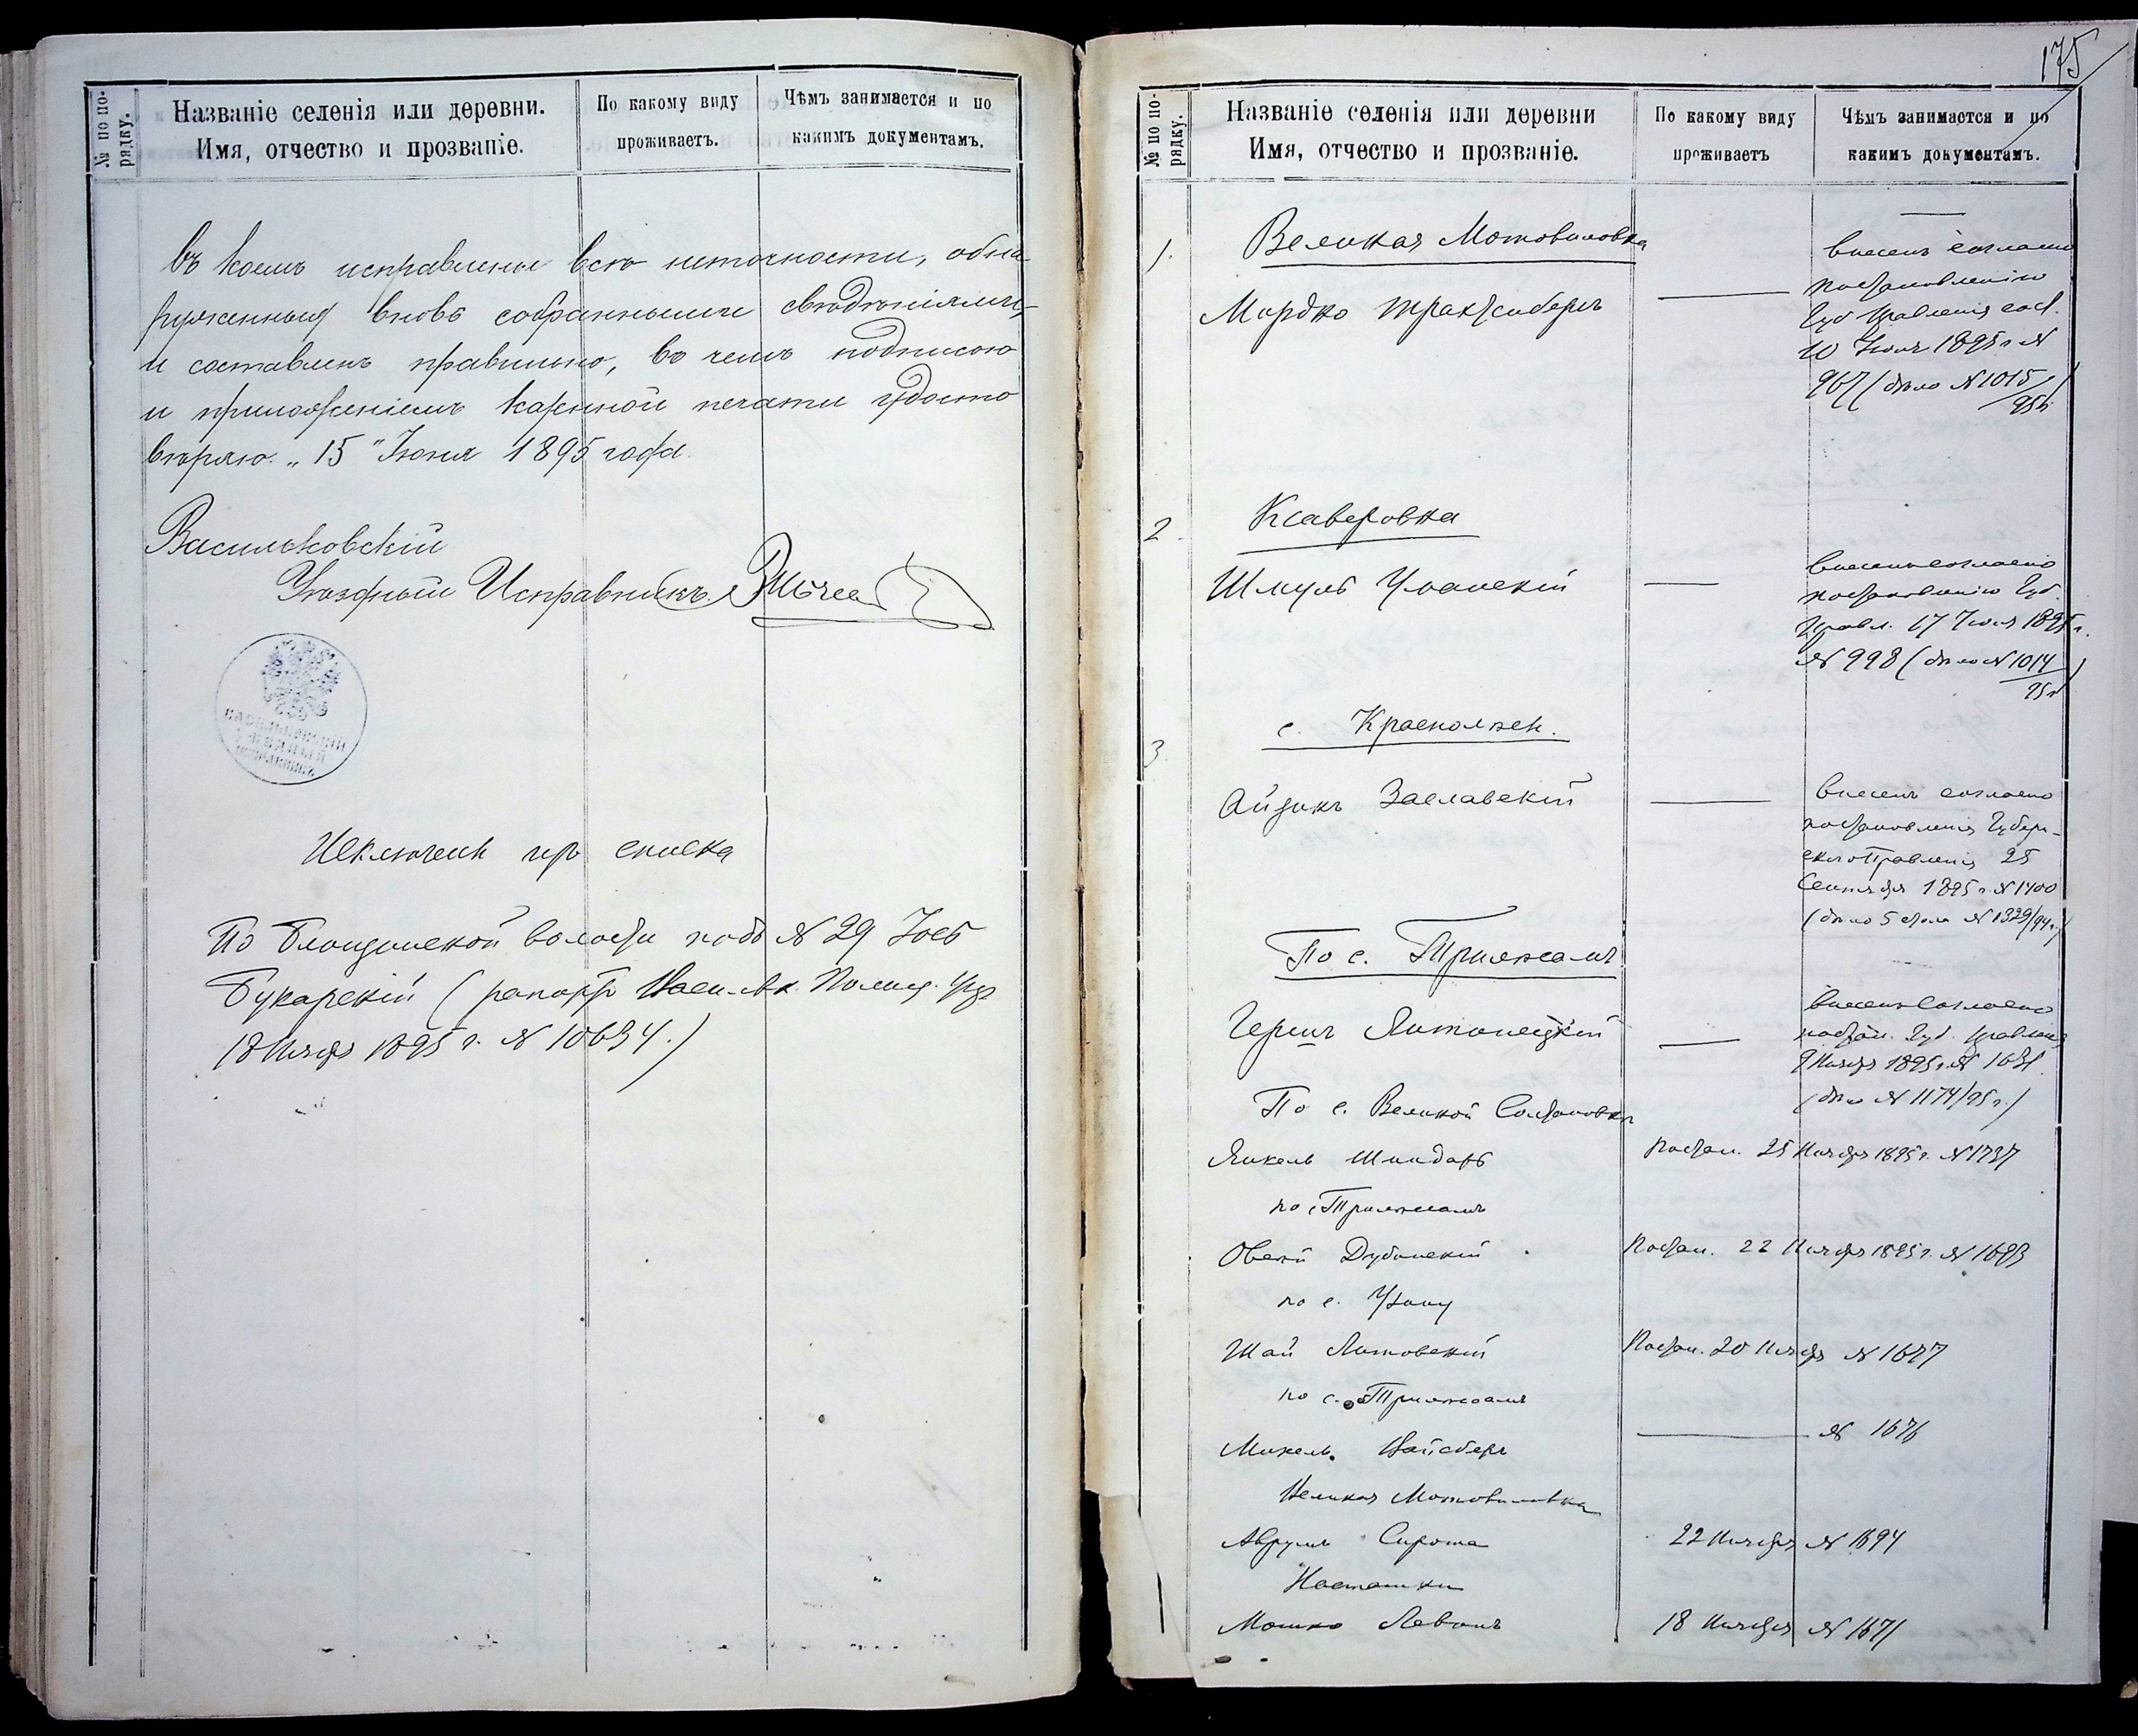 № по по-
рядку.
Названіе селенія или деревни.
Имя, отчество и прозваніе.
По какому виду
проживаетъ.
Чѣмъ занимается и по
какимъ документамъ.
въ коемъ исправлены всѣ неточности, обна
руженныя вновь собранными свѣдѣніями,
и составленъ правильно, въ чемъ подписью
и приложеніемъ казенной печати удосто
вѣряю. „15" Іюня 1895 года.
Васильковскій
Уѣздный Исправникъ
Исключенъ изъ списка
По волости подъ № 29 Іосъ
Букарскій (рапортъ Васильк. Полиц. Упр
18 Ноября 1895 г. № 10634.)
175
№ по по-
рядку.
Названіе селенія или деревни
Имя, отчество и прозваніе.
По какому виду
проживаетъ
Чѣмъ занимается и по
какимъ документамъ.
1. Великая Мотовиловка
Мордко
внесенъ согласно
постановленію
Губ Правленія сост.
10 Іюля 1895 г. №
967 (дѣло № 1015/95 г.)
2. Ксаверовка
Шмуль Уманскій
внесенъ согласно
постановленію Губ.
Правл. 17 Іюля 1895 г.
№ 998 (дѣло № 1014/95 г.)
3. с. Краснолѣсы.
Айзикъ Заславскій
внесенъ согласно
постановленія Губерн-
скаго Правленія 25
Сентября 1895 г. № 1400
(дѣло 5 стола № 1329/94 г.)
По с. Трилѣсамъ
Гершъ
внесенъ согласно
постан. Губ. Правленія
9 Ноября 1895 г. № 1631
(дѣло № 1174/95 г.)
По с. Великой Солтановкѣ
Янкель Шпидарь
Постан. 25 Ноября 1895 г. № 1737
по с. Трилѣсамъ
Овсей Дубинскій
Постан. 22 Ноября 1895 г. № 1693
по с.
Шай Литовскій
Постан. 20 Ноября № 1677
по с. Трилѣсамъ
Микель Вайсберъ
№ 1676
Великая Мотовиловка
Аврумъ Сирота
22 Ноября № 1694
Насташки
Мошко Левинъ
18 Ноября № 1671